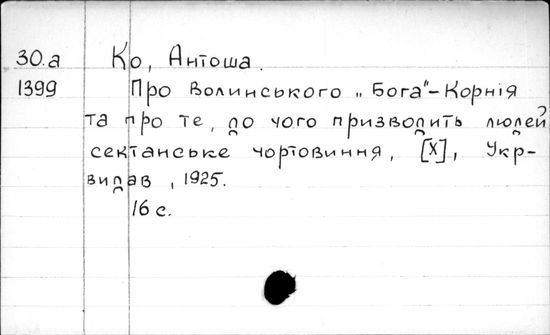 30.а Ко, Антоша.
1399 Про Волинського „Бога"-Корнія
та про те, до чого призводить людей
сектанське чортовиння, [Х], Укр-
видав, 1925.
16 с.